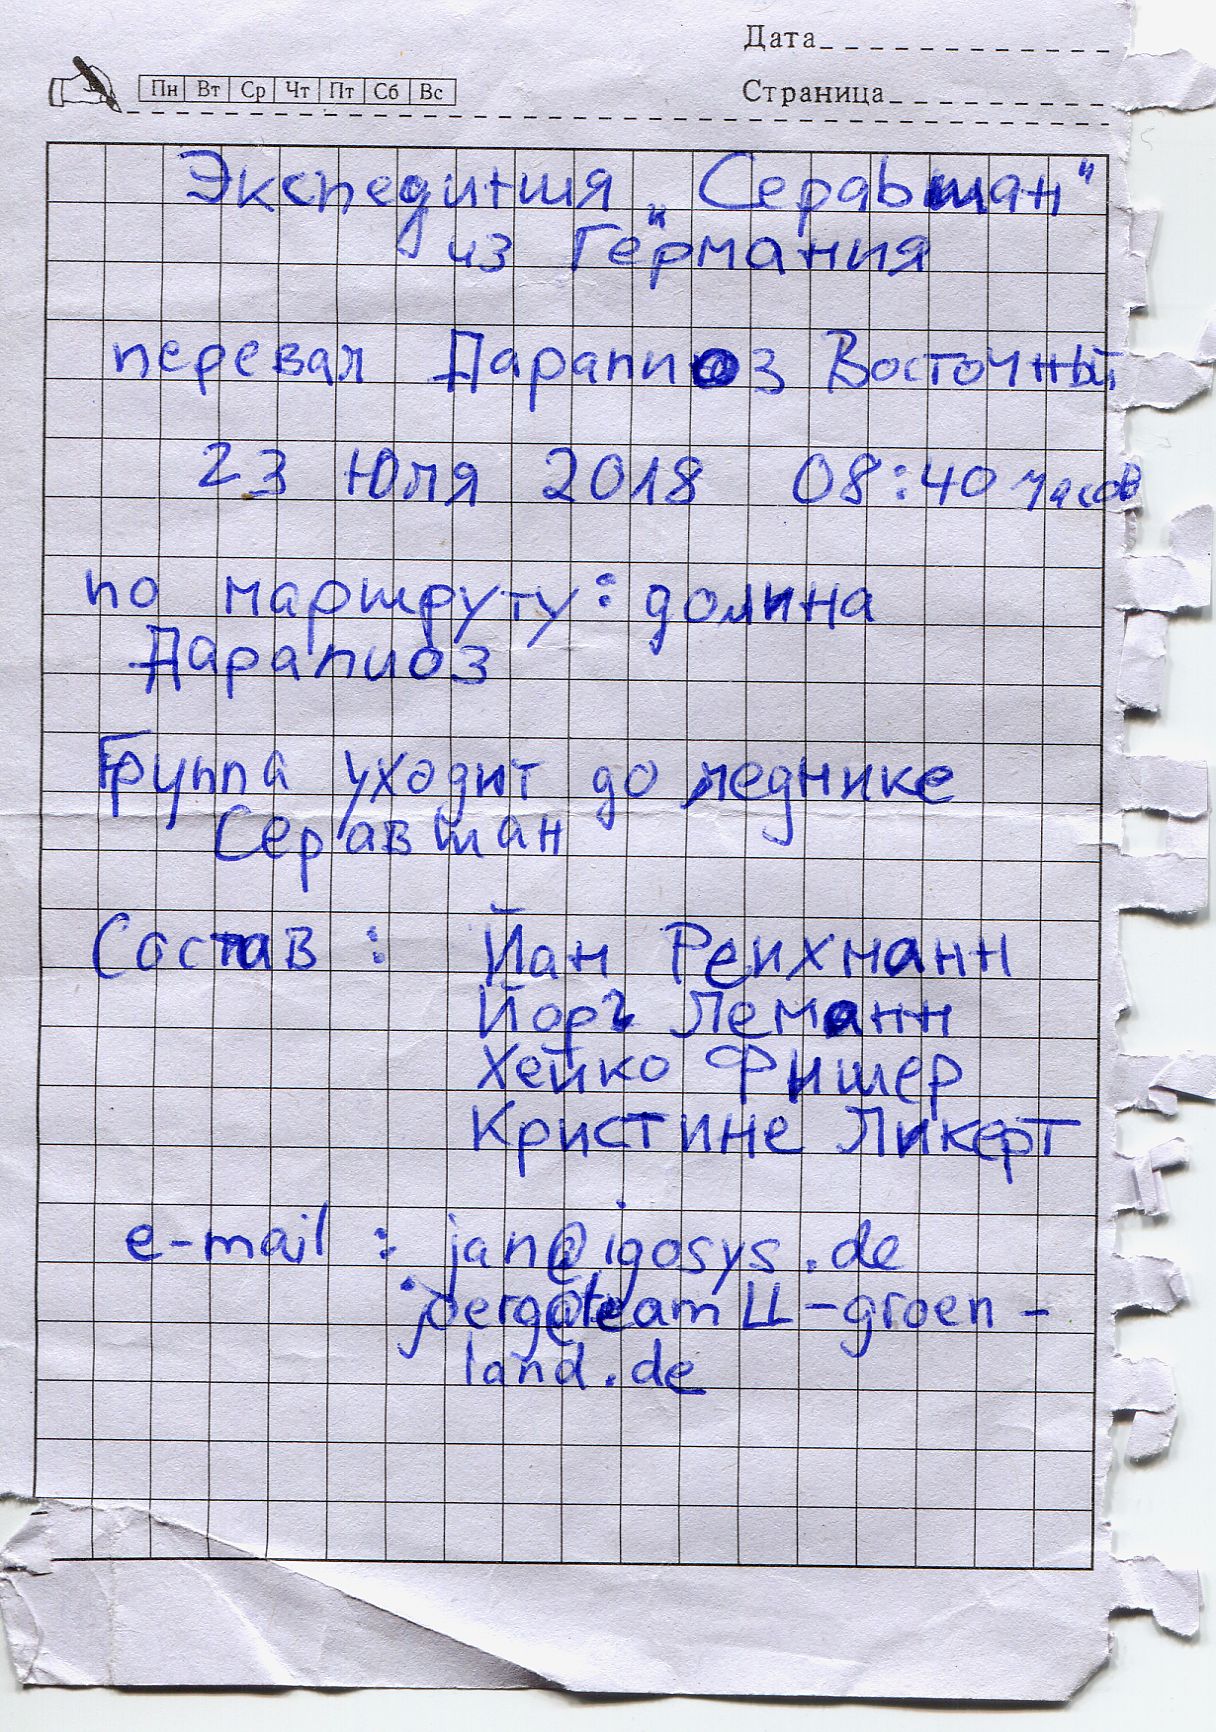 Дата
Пн Вт Ср Чт Пт Сб Вс
Страница
Экспедитшия „Серавшан“
из Германия
перевал Дарапиоз Восточный
23 Юля 2018 08:40 часов
по маршруту: долина
Дарапиоз
Группа уходит до леднике
Серавшан
Состав: Йан Реихманн
Йорг Леманн
Хейко Фишер
Кристине Ликерт
e-mail: jan@igosys.de
joerg@team LL-groen-
land.de